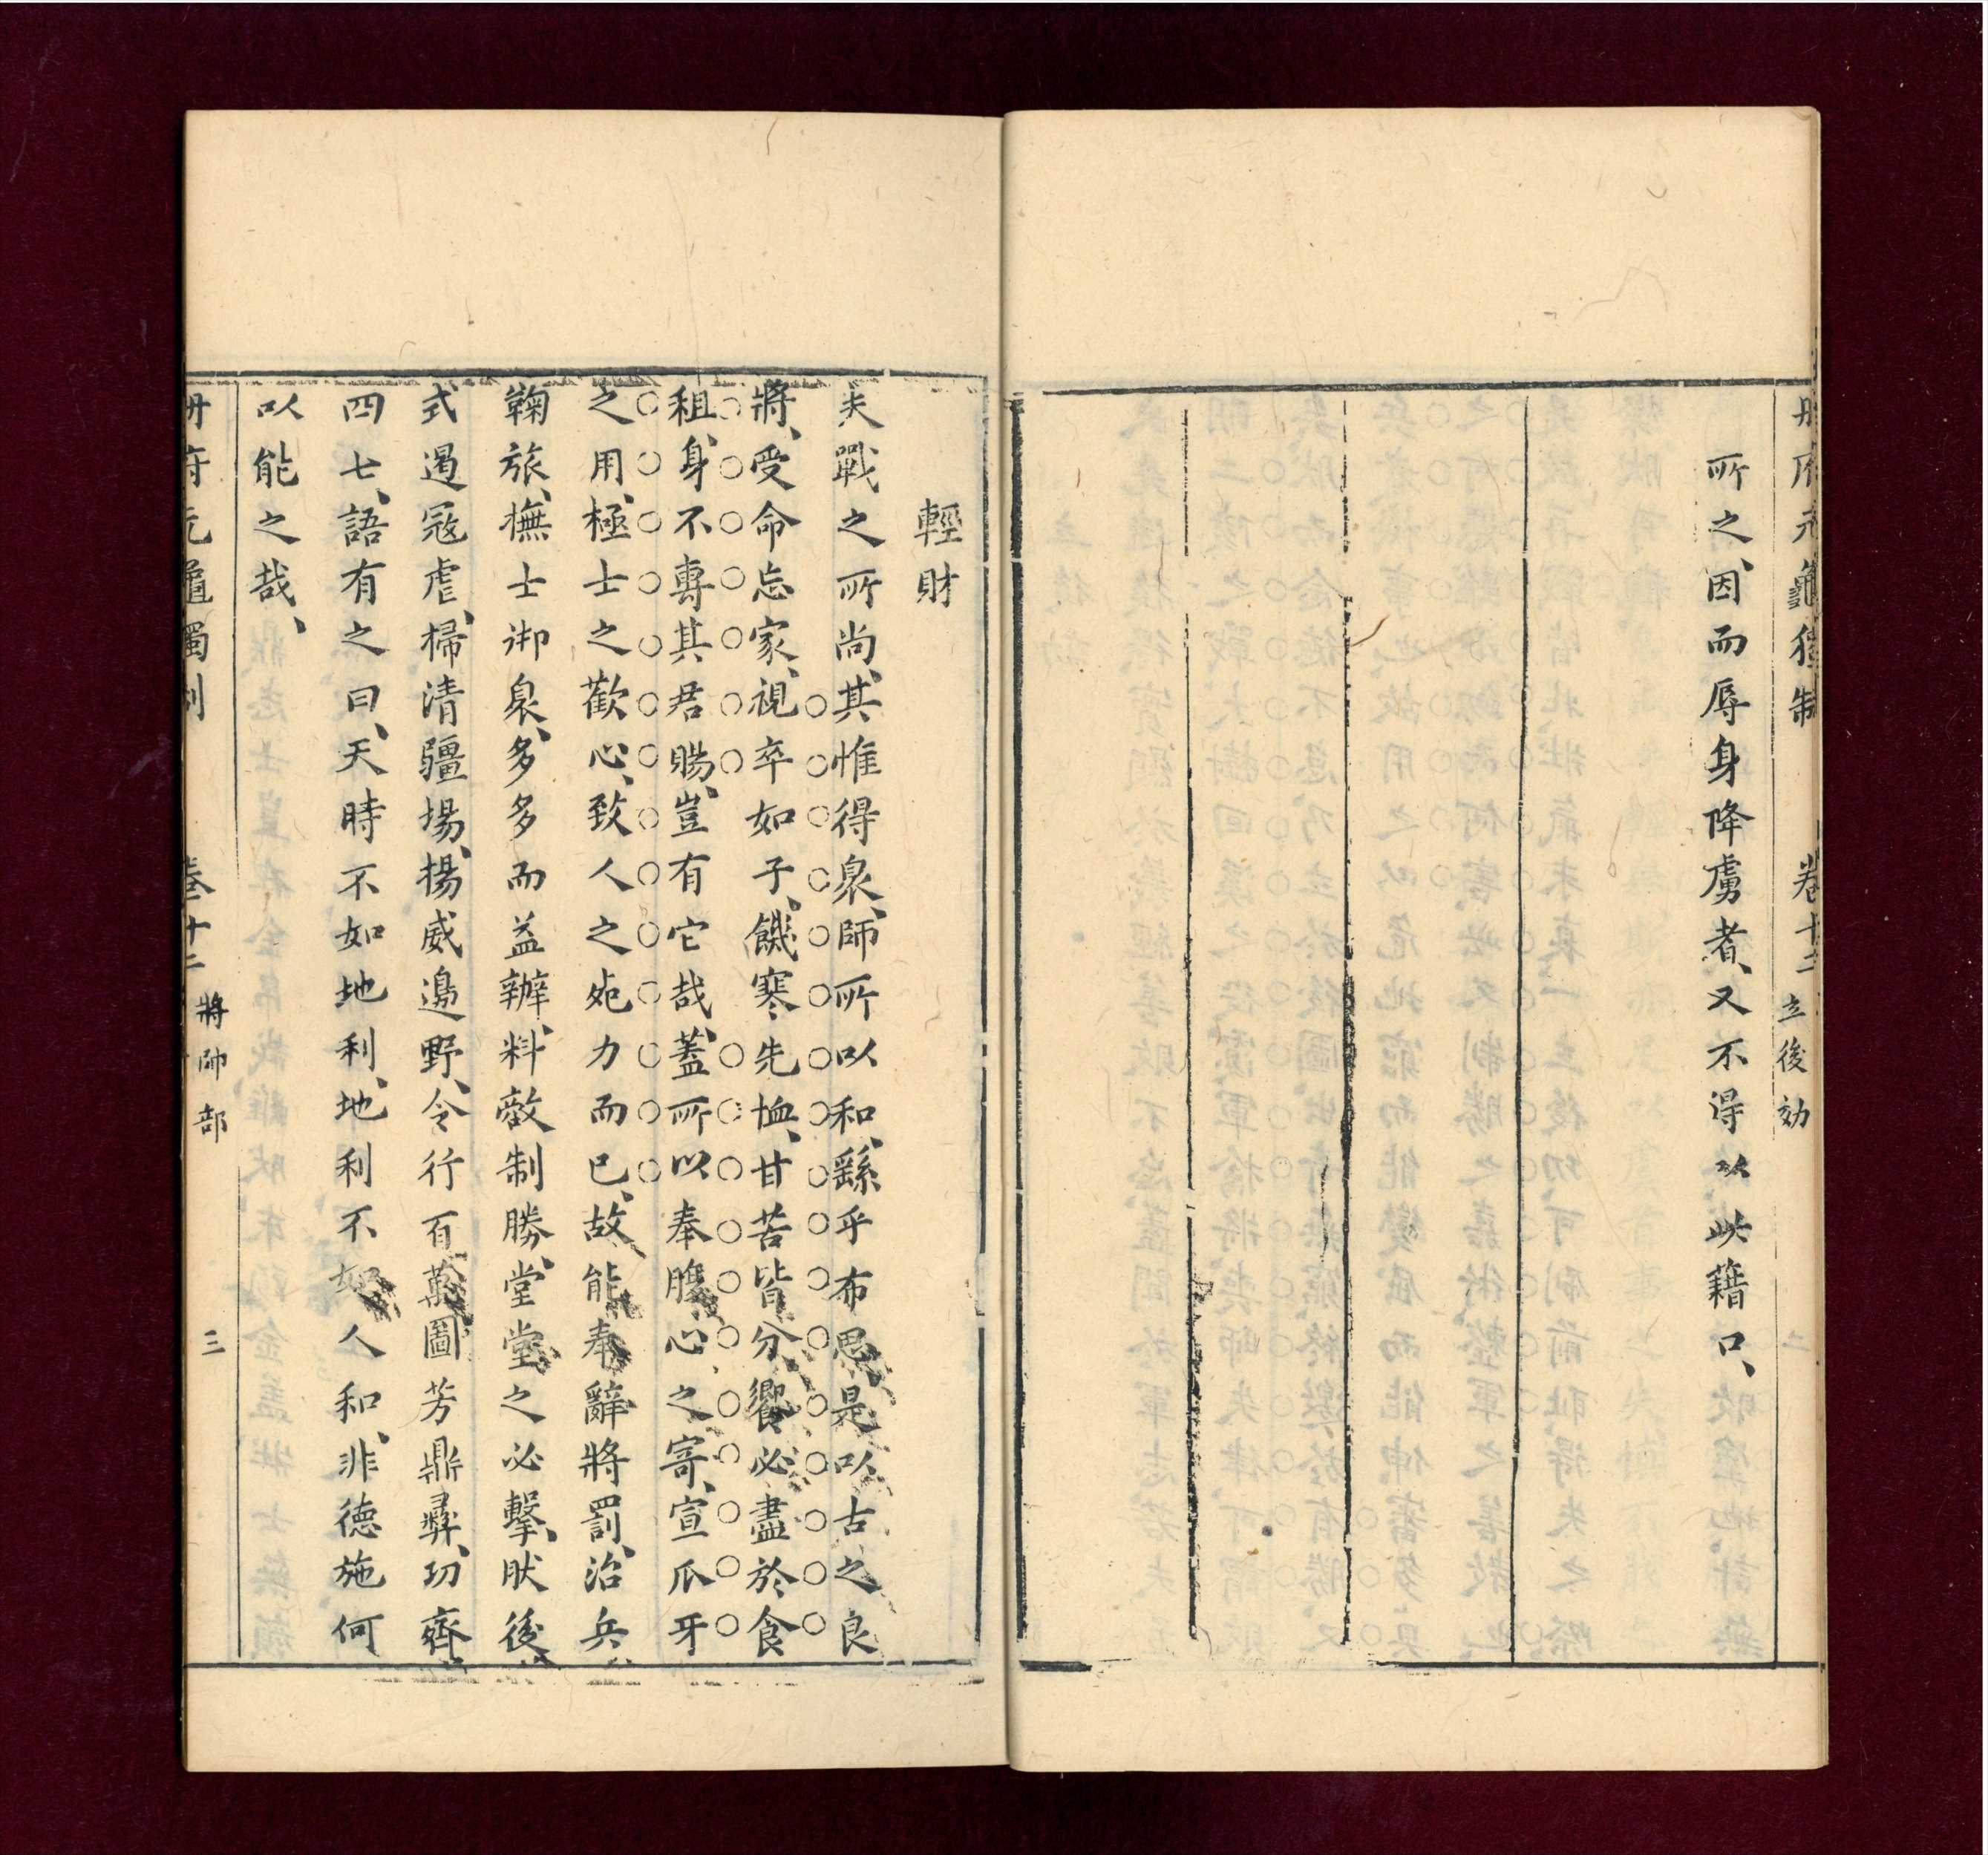 冊府元龜獨制 卷十二 立後効 二
所之、因而辱身降虜者、又不得以此藉口、
輕財
夫戰之所尚、其惟得衆、師所以和、繇乎布恩、是以古之良
將、受命忘家、視卒如子、饑寒先恤、甘苦皆分、饗必盡於食
租、身不專其君賜、豈有它哉、蓋所以奉腹心之寄、宣爪牙
之用、極士之歡心、致人之死力而已、故能奉辭將罰、治兵
鞠旅、撫士御衆、多多而益辦、料敵制勝、堂堂之必擊、然後
式遏寇虐、掃清疆場、揚威邊野、令行百萬、圖芳鼎彝、功齊
四七、語有之曰、天時不如地利、地利不如人和、非德施何
以能之哉、
冊府元龜獨制 卷十二 將帥部 三